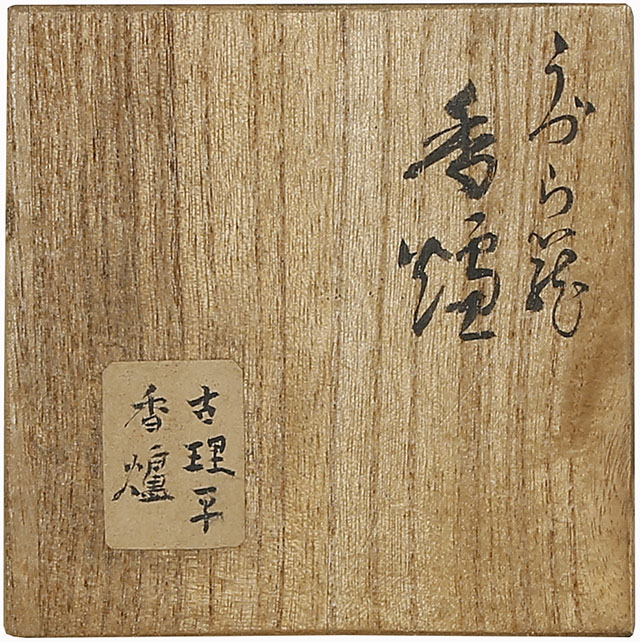 うづら籠
香爐
古理平
香爐